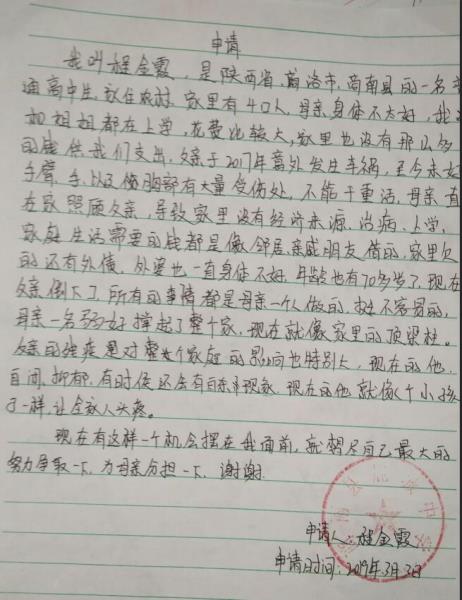 申请
我叫程金霞，是陕西省，商洛市，商南县的一名普
通高中生，家住农村，家里有4口人，母亲身体不太好，我
和姐姐都在上学，花费比较大，家里也没有那么多
的钱供我们支出，父亲于2017年意外发生车祸，至今未好
手臂，手以及胸部有大量受伤处，不能干重活，母亲一直
在家照顾父亲，导致家里没有经济来源，治病、上学，
家庭生活需要的钱都是像邻居，亲戚朋友借的，家里欠
的还有外债，外婆也一直身体不好，年龄也有70多岁了，现在
父亲倒下了，所有的事情都是母亲一个人做的，挺不容易的，
母亲一名弱女子撑起了整个家，现在就像家里的顶梁柱。
父亲的残疾是对整个家庭的影响也特别大，现在的他，
自闭，抑郁，有时候还会有自杀现象，现在的他就像个小孩
子一样，让全家人头疼。
现在有这样一个机会摆在我面前，就想尽自己最大的
努力争取一下，为母亲分担一下，谢谢
申请人：程金霞
申请日时间：2019年3月3日